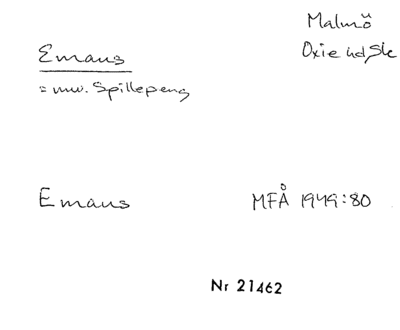 Malmö
Emaus
Oxie hd Sk
= nuv. Spillepeng
Emaus MFÅ 1949:80
Nr 21462